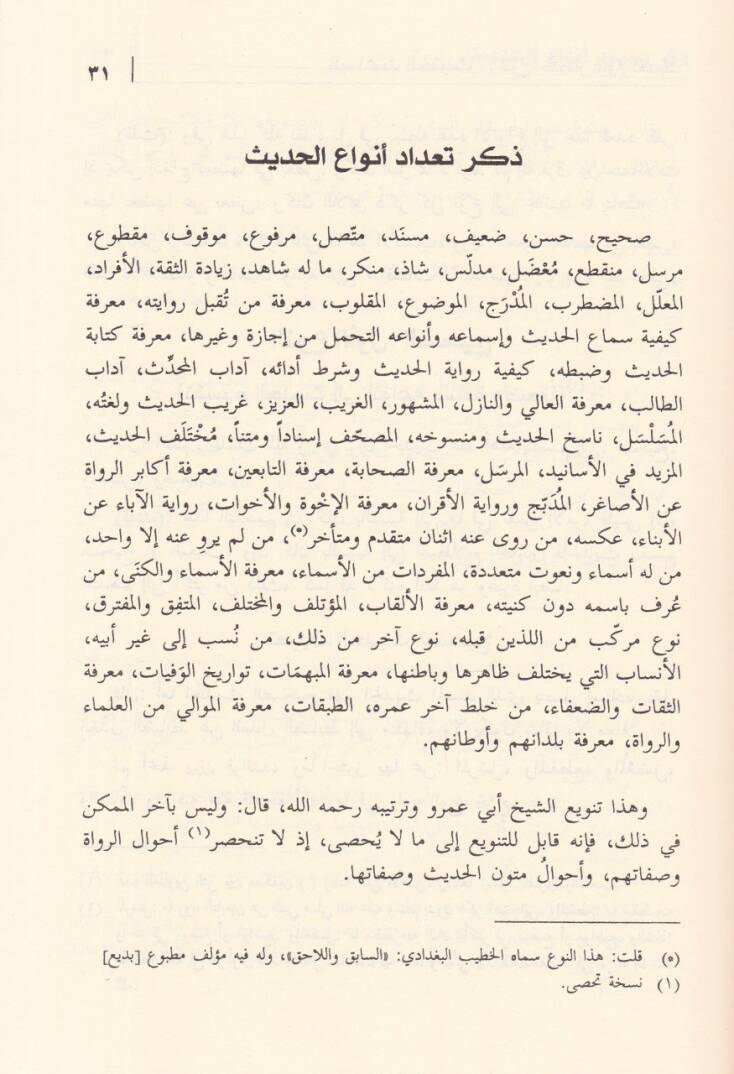 ٣١
ذكر تعداد أنواع الحديث
صحيح، حسن، ضعيف، مسنَد، متّصل، مرفوع، موقوف، مقطوع،
مرسل، منقطع، مُعْضَل، مدلّس، شاذ، منكر، ما له شاهد، زيادة الثقة، الأفراد،
المعلّل، المضطرب، المُدْرَج، الموضوع، المقلوب، معرفة من تُقبل روايته، معرفة
كيفية سماع الحديث وإسماعه وأنواعه التحمل من إجازة وغيرها، معرفة كتابة
الحديث وضبطه، كيفية رواية الحديث وشرط أدائه، آداب المحدِّث، آداب
الطالب، معرفة العالي والنازل، المشهور، الغريب، العزيز، غريب الحديث ولغتُه،
المُسَلْسَل، ناسخ الحديث ومنسوخه، المصحّف إسناداً ومتناً، مُخْتَلَف الحديث،
المزيد في الأسانيد، المرسَل، معرفة الصحابة، معرفة التابعين، معرفة أكابر الرواة
عن الأصاغر، المُدَبّج ورواية الأقران، معرفة الإخْوة والأخوات، رواية الآباء عن
الأبناء، عكسه، من روى عنه اثنان متقدم ومتأخر(*)، من لم يروِ عنه إلا واحد،
من له أسماء ونعوت متعددة، المفردات من الأسماء، معرفة الأسماء والكنَى، من
عُرف باسمه دون كنيته، معرفة الألقاب، المؤتلف والمختلف، المتفِق والمفترق،
نوع مركّب من اللذين قبله، نوع آخر من ذلك، من نُسب إلى غير أبيه،
الأنساب التي يختلف ظاهرها وباطنها، معرفة المبهمَات، تواريخ الوَفيات، معرفة
الثقات والضعفاء، من خلط آخر عمره، الطبقات، معرفة الموالي من العلماء
والرواة، معرفة بلدانهم وأوطانهم.
وهذا تنويع الشيخ أبي عمرو وترتيبه رحمه الله، قال: وليس بآخر الممكن
في ذلك، فإنه قابل للتنويع إلى ما لا يُحصى، إذ لا تنحصر(١) أحوال الرواة
وصفاتهم، وأحوالُ متون الحديث وصفاتها.
(*) قلت: هذا النوع سماه الخطيب البغدادي: «السابق واللاحق»، وله فيه مؤلف مطبوع [بديع]
(١) نسخة تحصى.